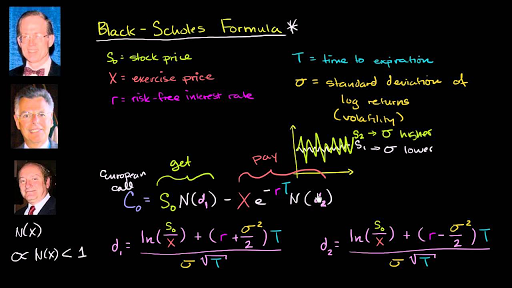 Black-Scholes Formula *
S₀ = stock price
X = exercise price
r = risk-free interest rate
T = time to expiration
σ = standard deviation of
log returns
(volatility)
S₂ → σ higher
S₁ → σ lower
get
pay
European
call
C₀ = S₀N(d₁) - Xe^(-rT)N(d₂)
N(x)
0 < N(x) < 1
d₁ = (ln(S₀/X) + (r + σ²/2)T) / (σ√T)
d₂ = (ln(S₀/X) + (r - σ²/2)T) / (σ√T)